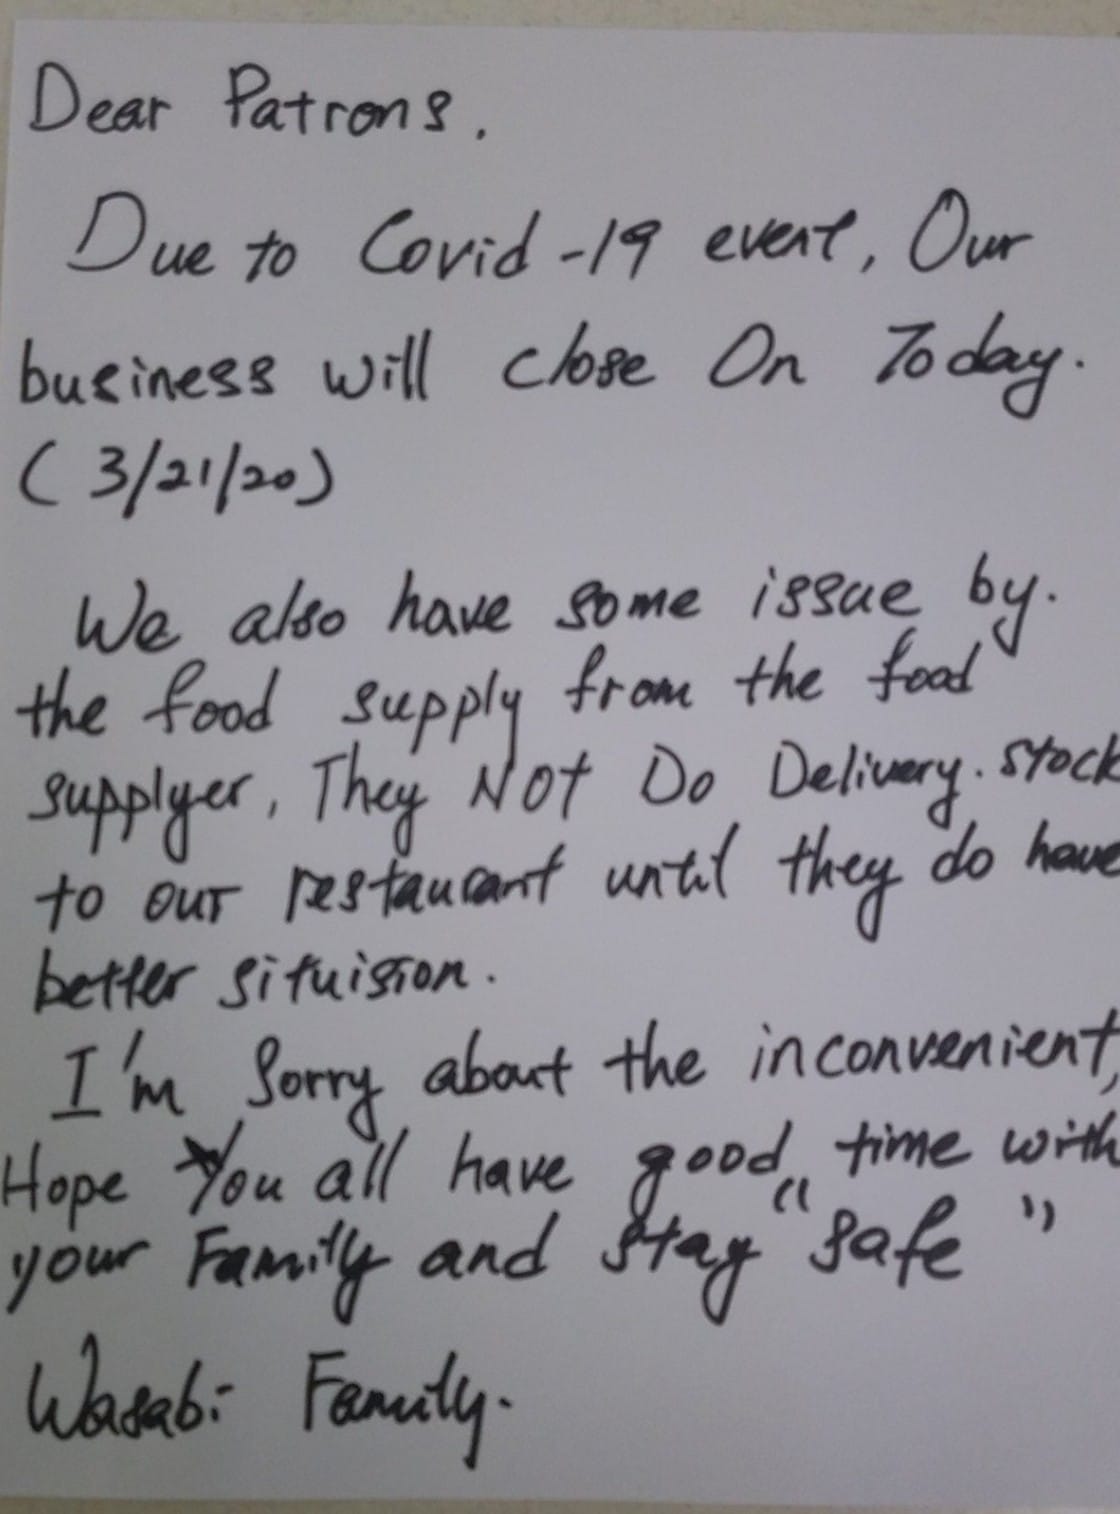 Dear Patrons.
Due to Covid-19 event, Our
business will close On Today.
(3/21/20)
We also have some issue by.
the food supply from the food
supplyer, They Not Do Delivery. stock
to our restaurant until they do have
better situision.
I'm Sorry about the inconvenient,
Hope You all have good time with
your Family and stay "safe"
Wasabi Family.